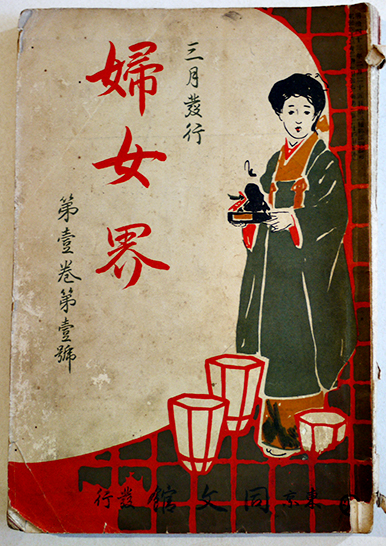 三月發行
婦女界
第壹卷第壹號
東京同文館發行